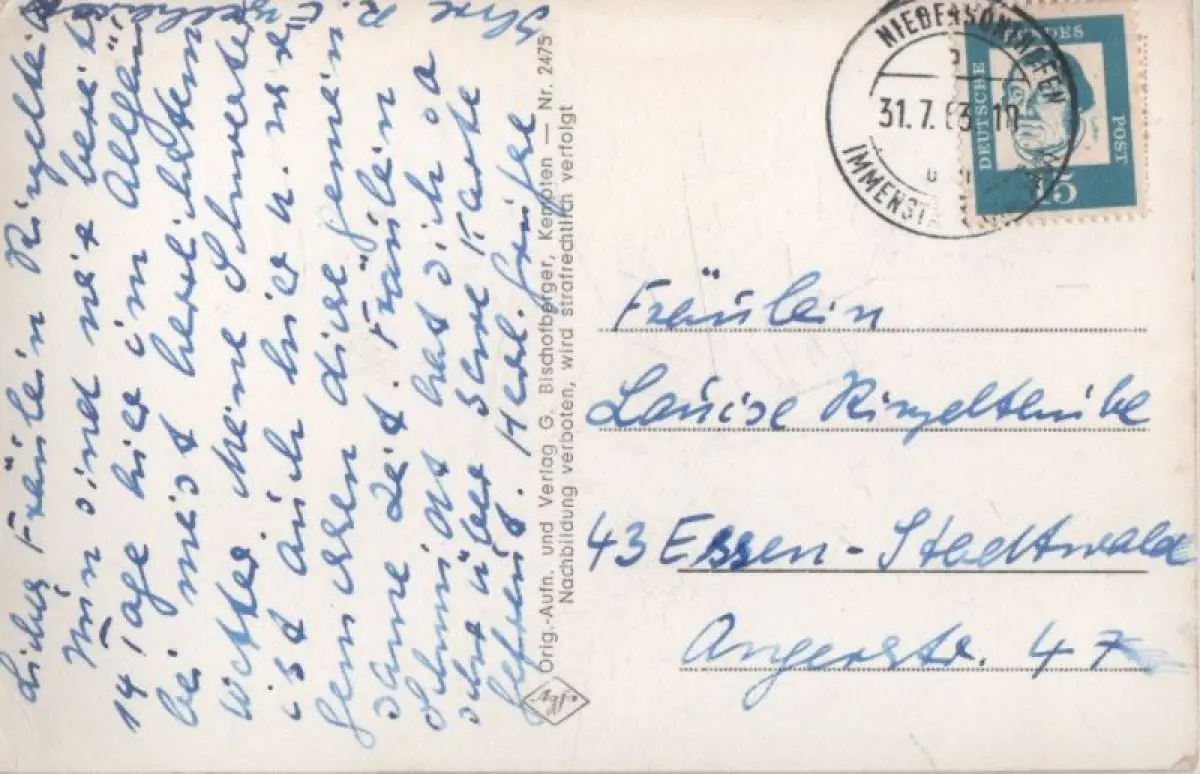 Liebes Fräulein Ringeltei
Nun sind wir bereits
14 Tage hier im Allgäu
bei meist herrlichstem
Wetter. Meine Schwester
ist auch hier u. wir
genießen diese gemein
same Zeit. Fräulein
Schmidt hat sich so
sehr über Ihre Karte
gefreut. Herzl. Grüße
Ihre R.
Orig.-Aufn. und Verlag G. Bischofberger, Kempten — Nr. 2475
Nachbildung verboten, wird strafrechtlich verfolgt
Agfa
NIEDERSONTHOFEN
31.7.63-10
IMMENSTA
DEUTSCHE
BUNDES
POST
15
Fräulein
Louise Ringeltaube
43 Essen-Stadtwald
Angerstr. 47